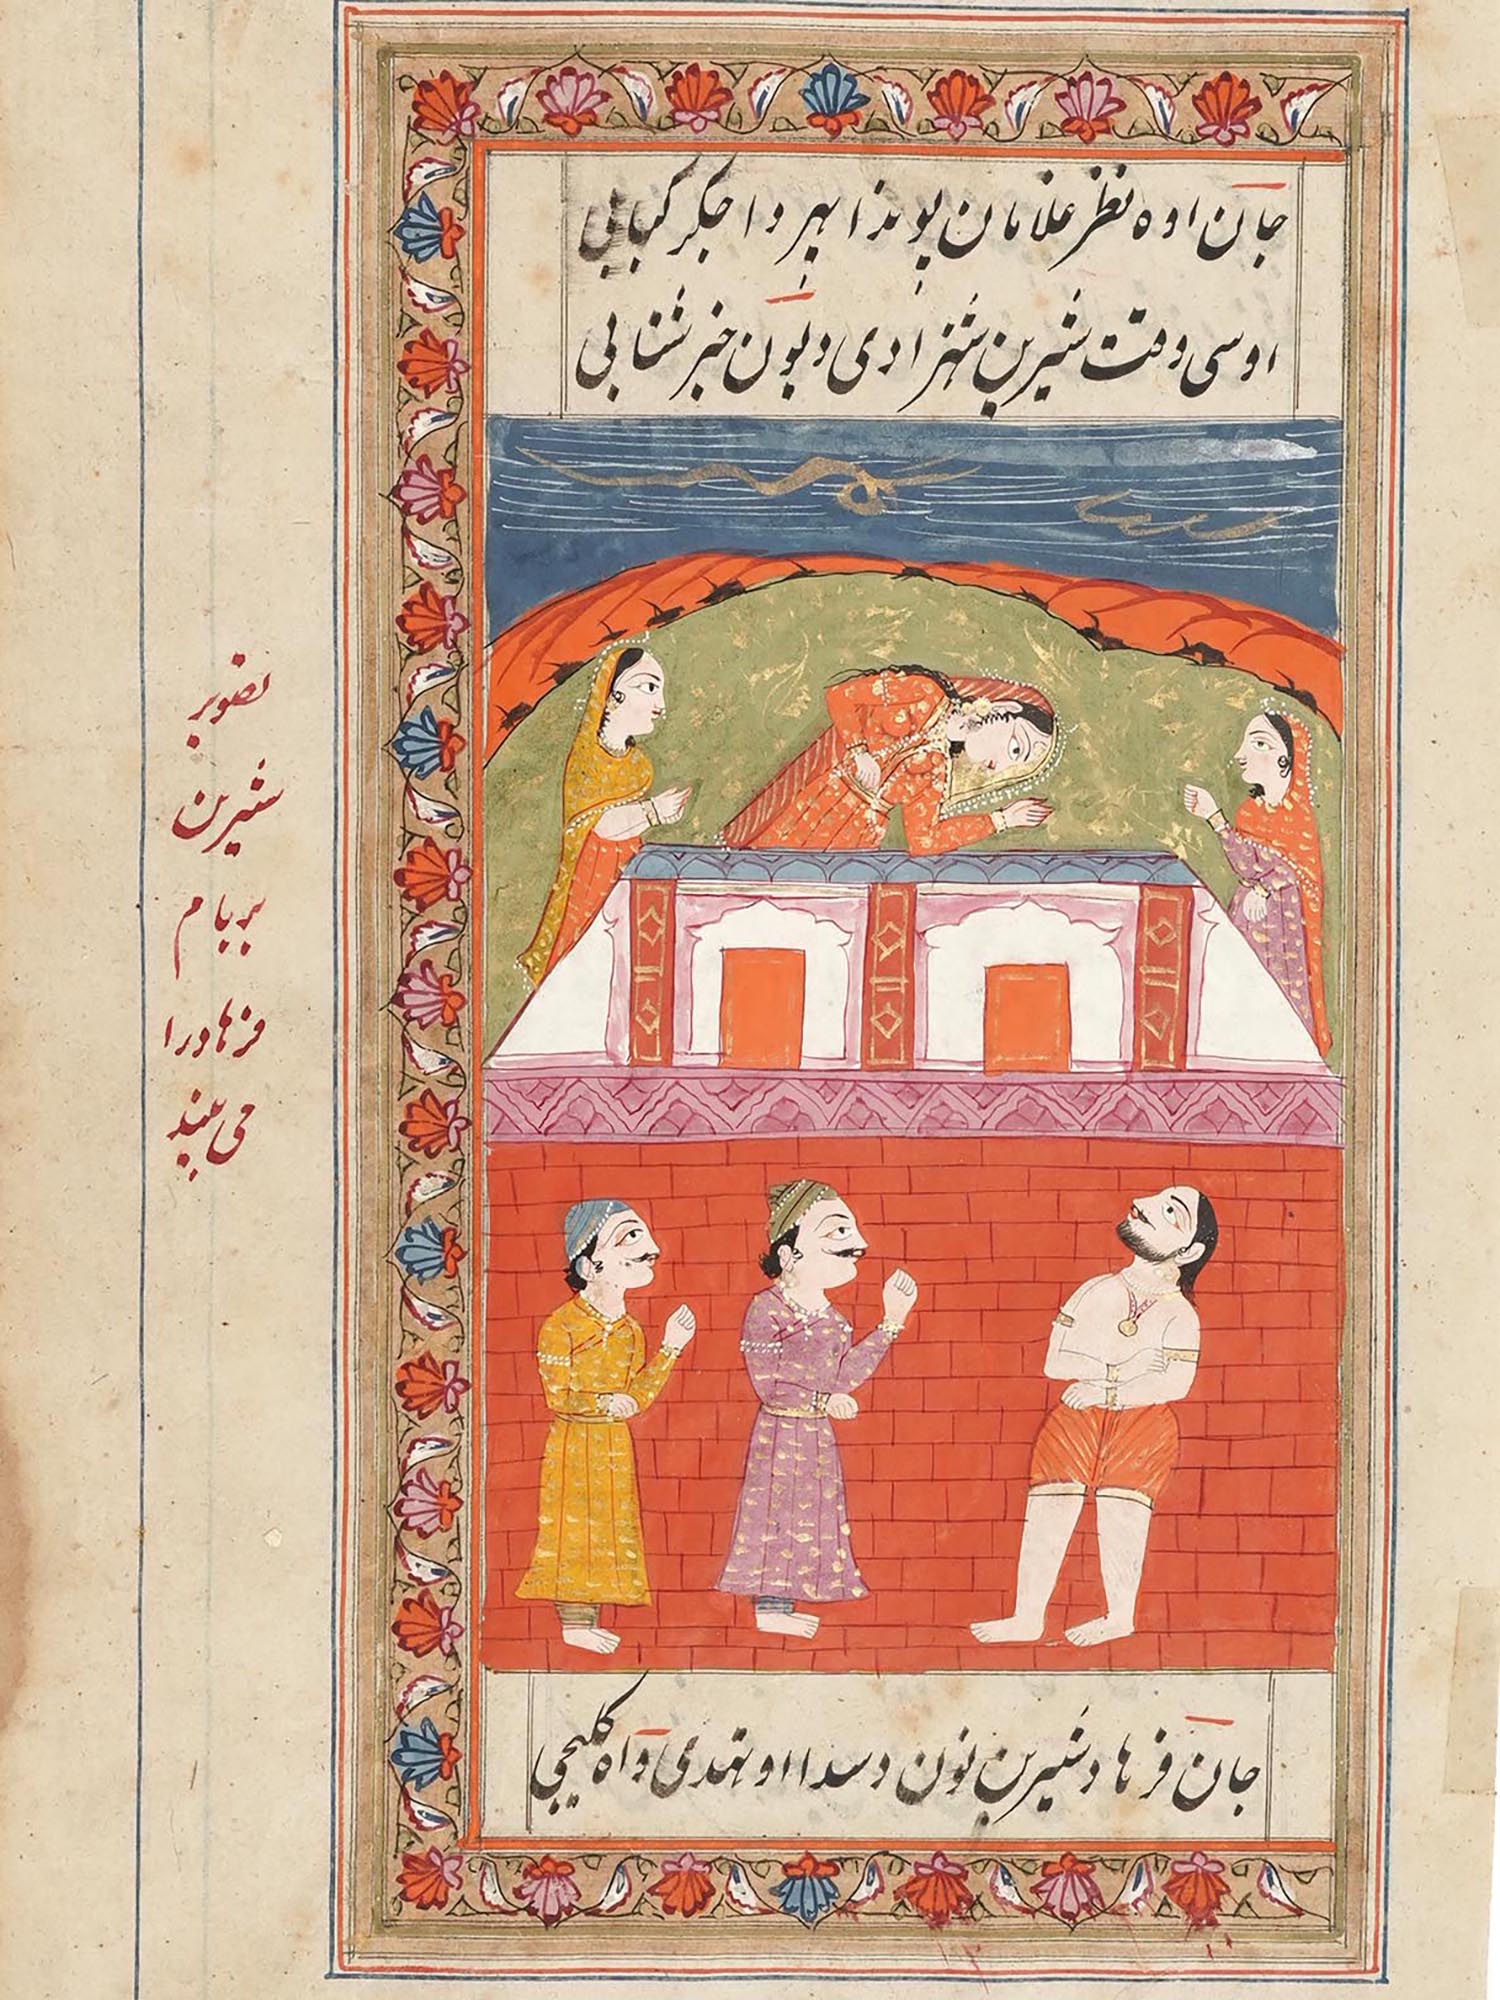 جان اوه نظر غلامان پوندا بهر دا جکر کبابی
اوسی وقت شیرین شهزادی دیون خبر شتابی
تصویر
شیرین
بر بام
فرهاد را
می بیند
جان فرهاد شیرین نون دسدا اوتهدی واه کلیجی